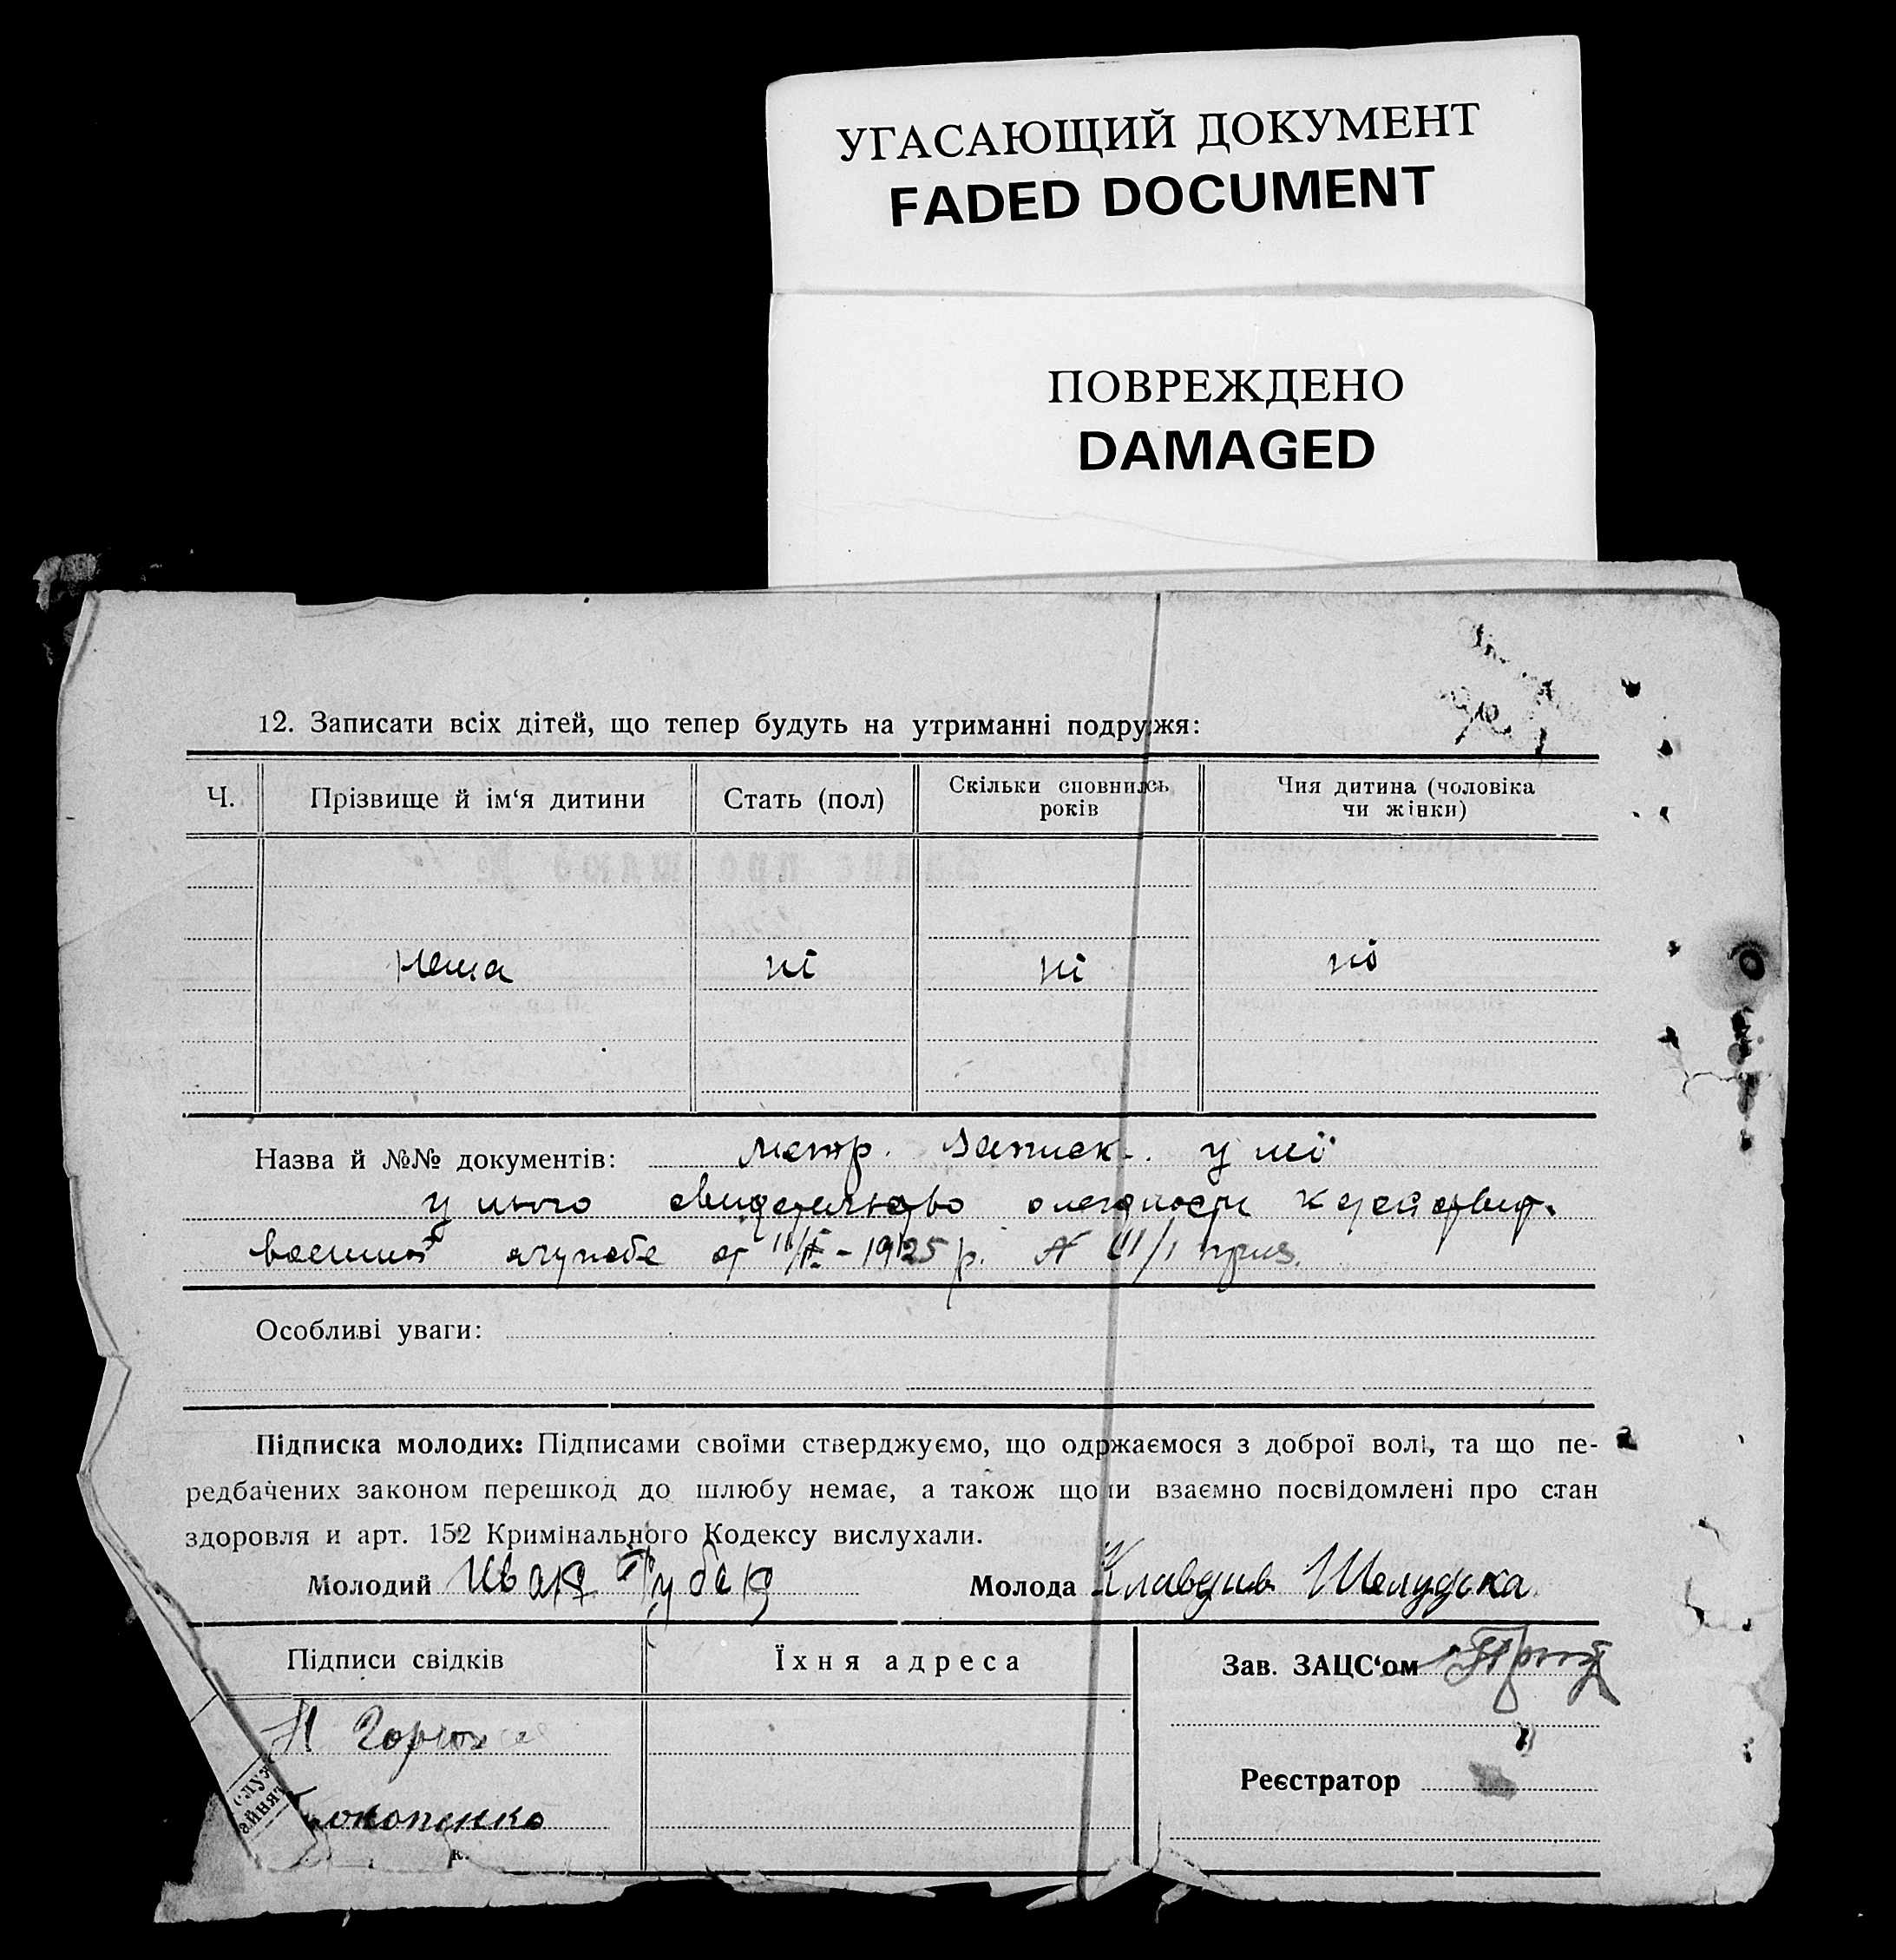 УГАСАЮЩИЙ ДОКУМЕНТ
FADED DOCUMENT
ПОВРЕЖДЕНО
DAMAGED
12. Записати всіх дітей, що тепер будуть на утриманні подружжя:
Ч. Прізвище й ім‘я дитини Стать (пол) Скільки сповнилось років Чия дитина (чоловіка чи жінки)
нема ні ні ні
Назва й №№ документів: метр. у неї
у нього
от 1925 р.
Особливі уваги:
Підписка молодих: Підписами своїми стверджуємо, що одржаємося з доброї волі, та що пе-
редбачених законом перешкод до шлюбу немає, а також що ми взаємно посвідомлені про стан
здоровля и арт. 152 Кримінального Кодексу вислухали.
Молодий Иван Молода Клавдия
Підписи свідків Їхня адреса Зав. ЗАЦС‘ом
Реєстратор